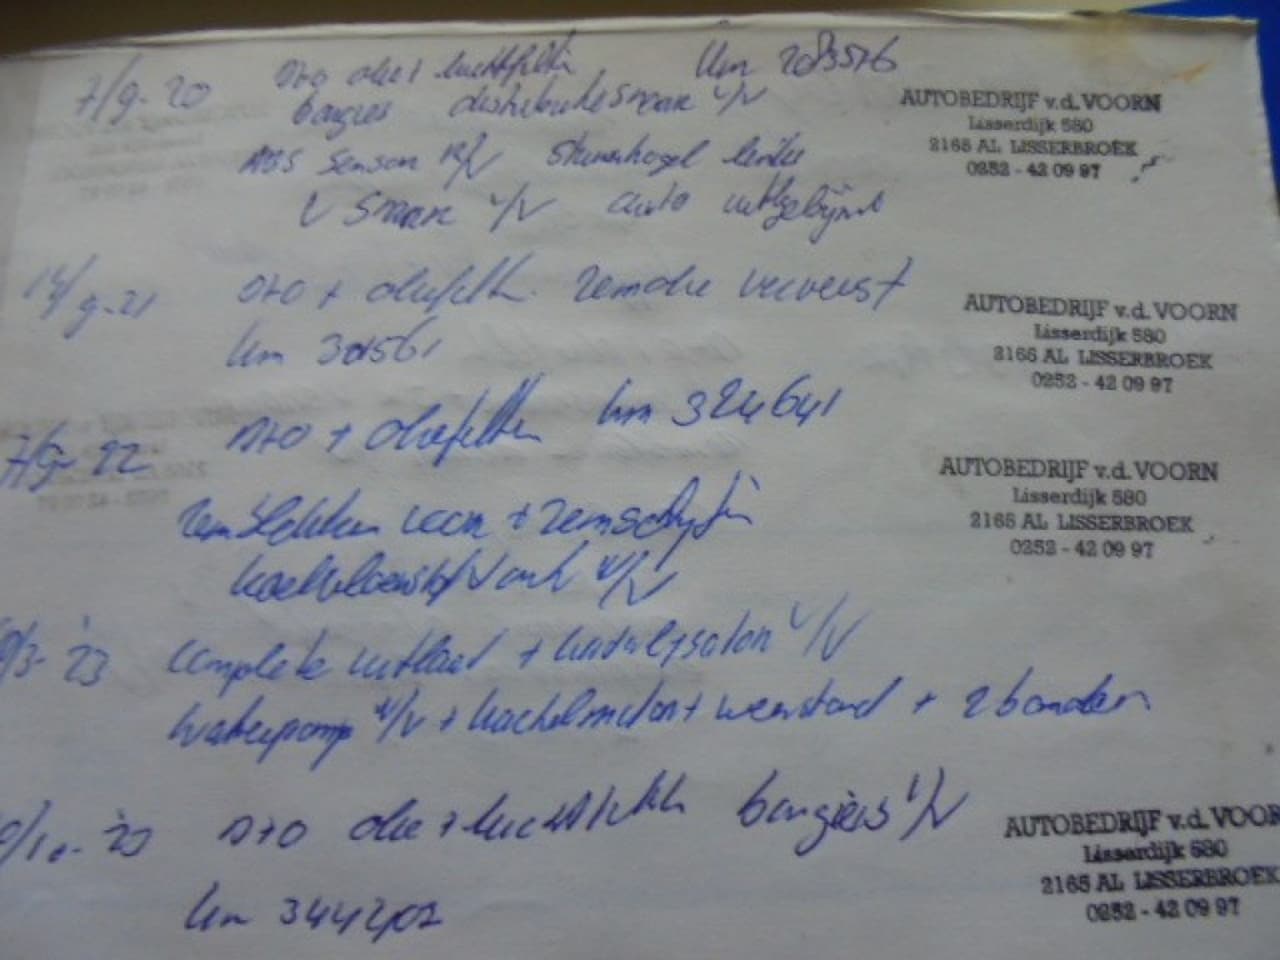 7/9-20 D+O olie + luchtfilter km 283576
bougies distributiesnaar V/V
ABS Sensor R/V linke
V Snaar V/V auto uitgelijnt
AUTOBEDRIJF v.d. VOORN
Lisserdijk 580
2165 AL LISSERBROEK
0252 - 42 09 97
14/9-21 D+O + oliefilter. remolie ververst
km 301561
AUTOBEDRIJF v.d. VOORN
Lisserdijk 580
2165 AL LISSERBROEK
0252 - 42 09 97
7/9-22 D+O + oliefilter km 324641
remblokken voor + remschijfen
koelvloeistof tank V/V
AUTOBEDRIJF v.d. VOORN
Lisserdijk 580
2165 AL LISSERBROEK
0252 - 42 09 97
/3-'23 complete uitlaat + katalysator V/V
waterpomp V/V + kachelmotor + weerstand + 2 banden
/10-'23 D+O olie + luchtfilter bougies V/V
km 344207
AUTOBEDRIJF v.d. VOOR
Lisserdijk 580
2165 AL LISSERBROEK
0252 - 42 09 97